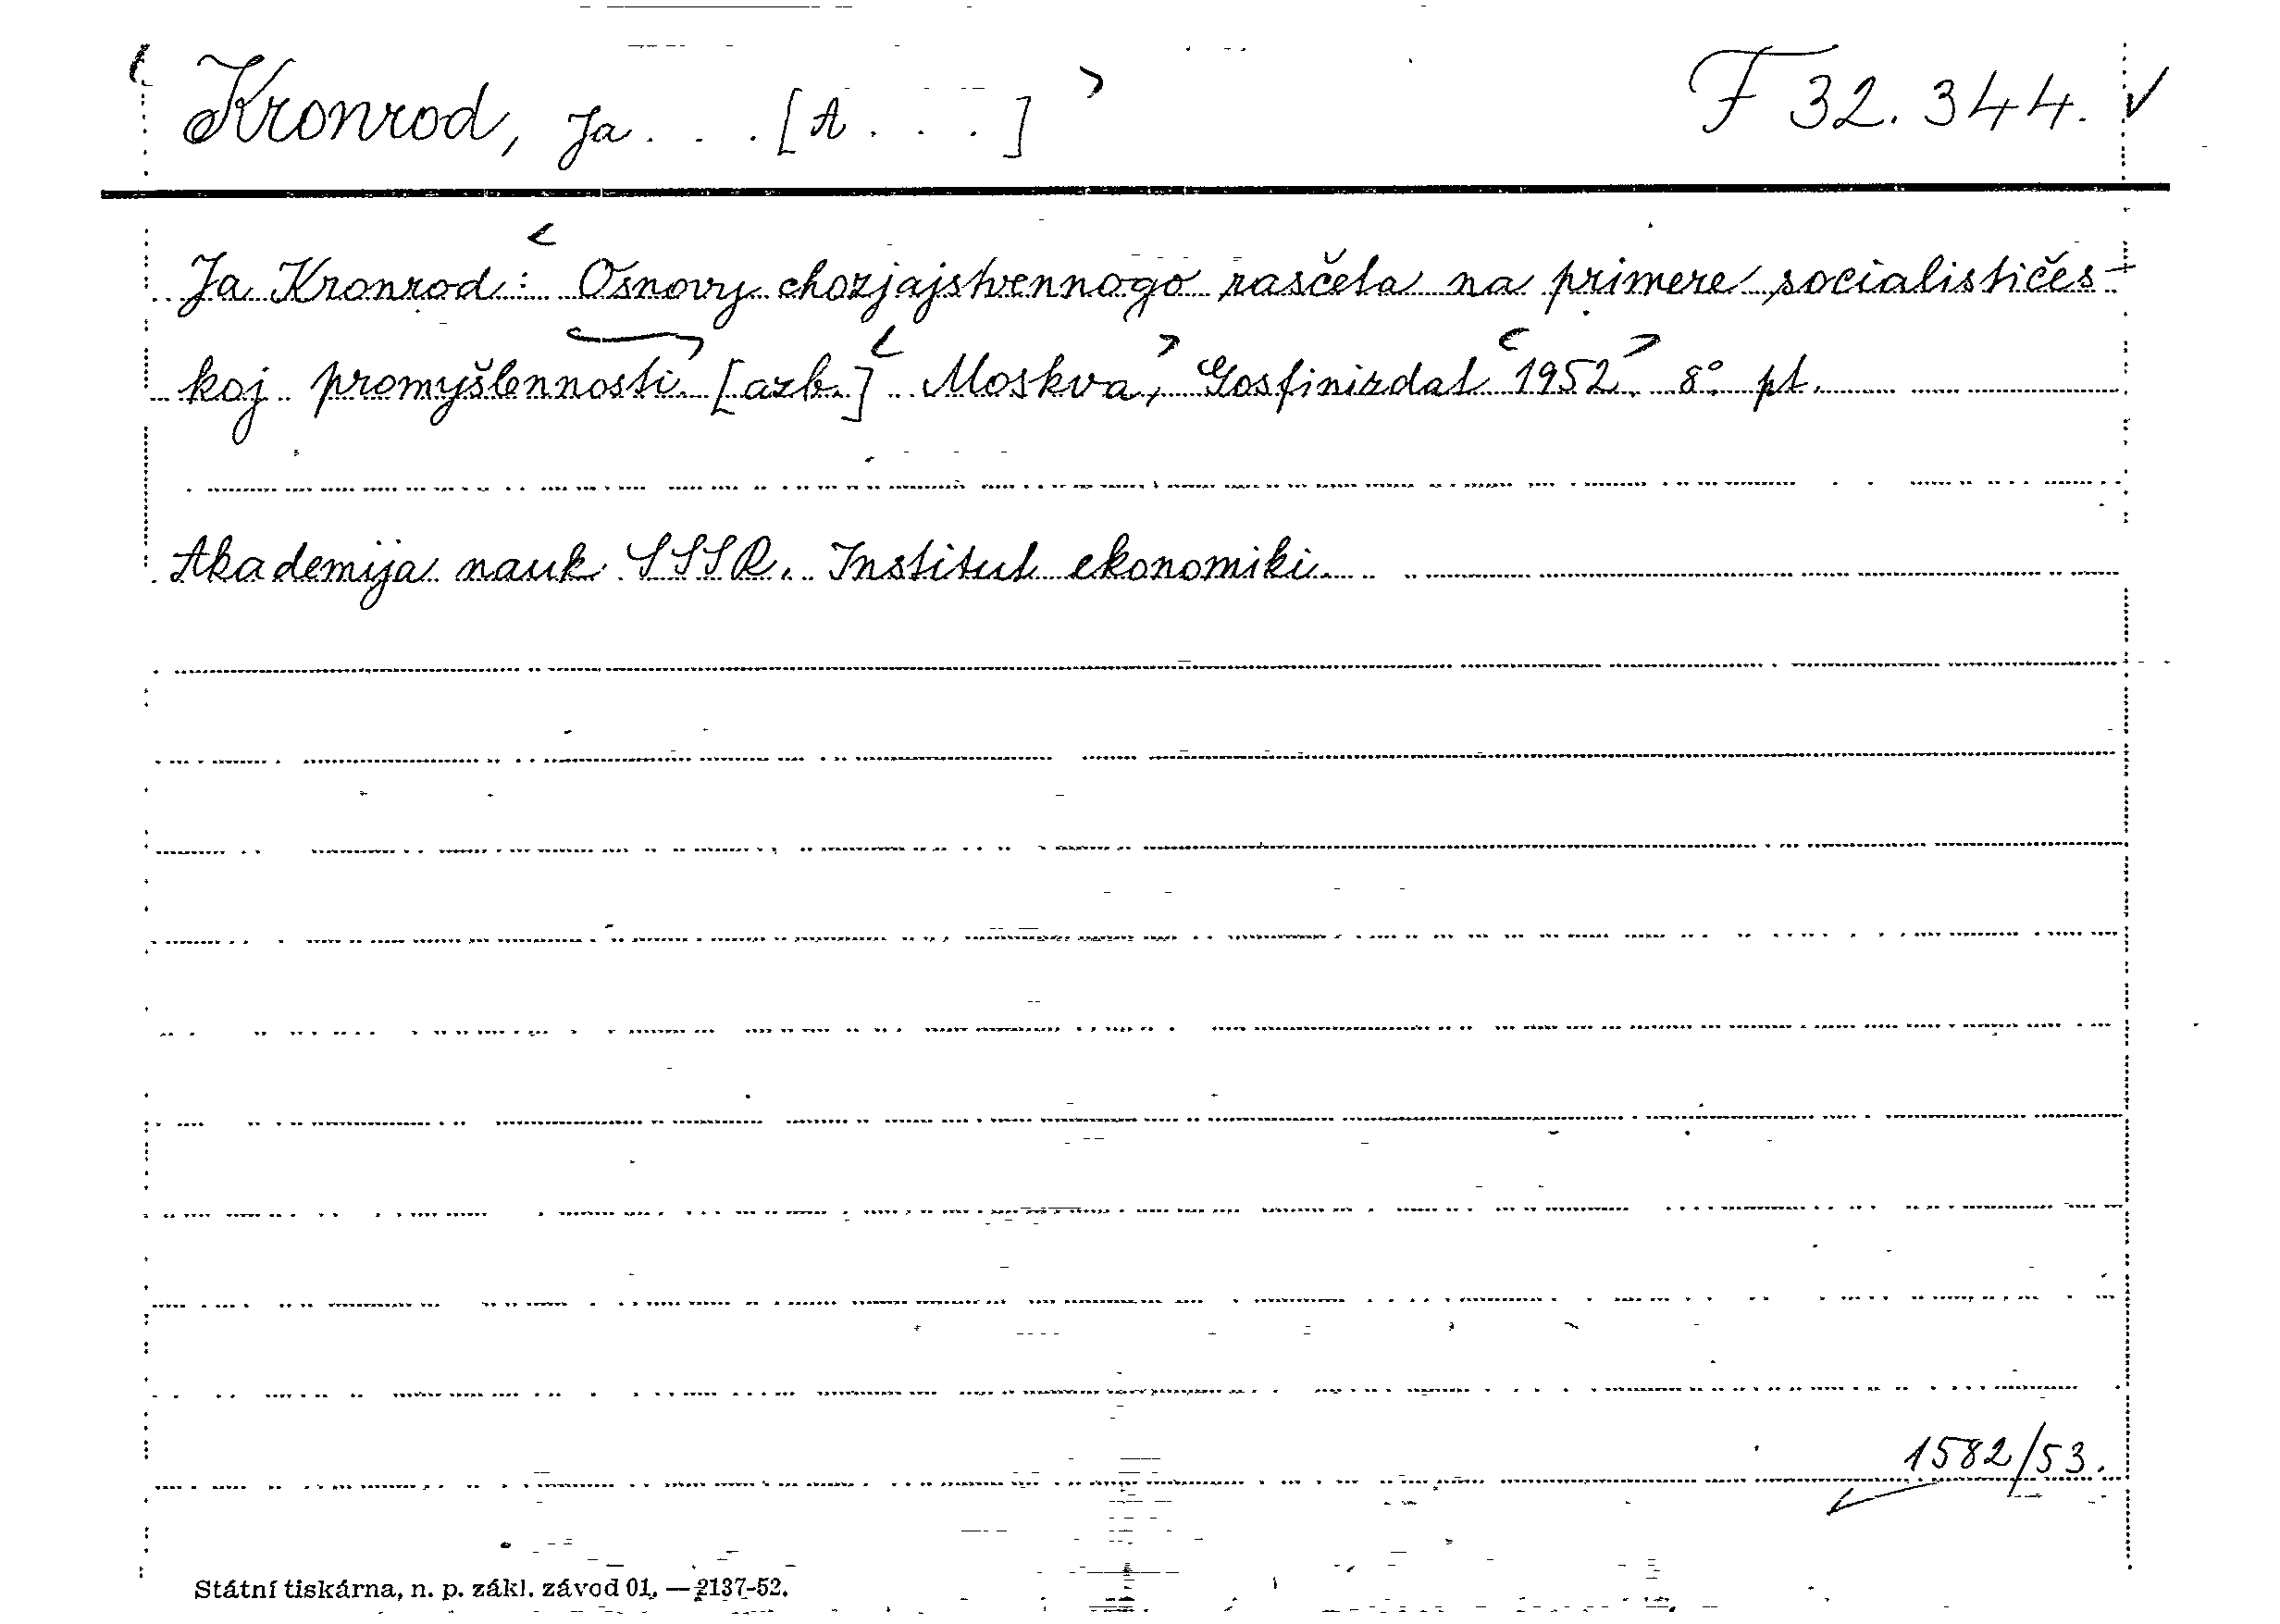 Kronrod, Ja . . . [A . . . ] F 32.344.
Ja Kronrod: Osnovy chozjajstvennogo rasčeta na primere socialističes-
koj promyšlennosti. [azb.] Moskva, Gosfinizdat 1952. 8° pt.
Akademija nauk SSSR. Institut ekonomiki.
1582/53.
Státní tiskárna, n. p. zákl. závod 01. — 2137-52.